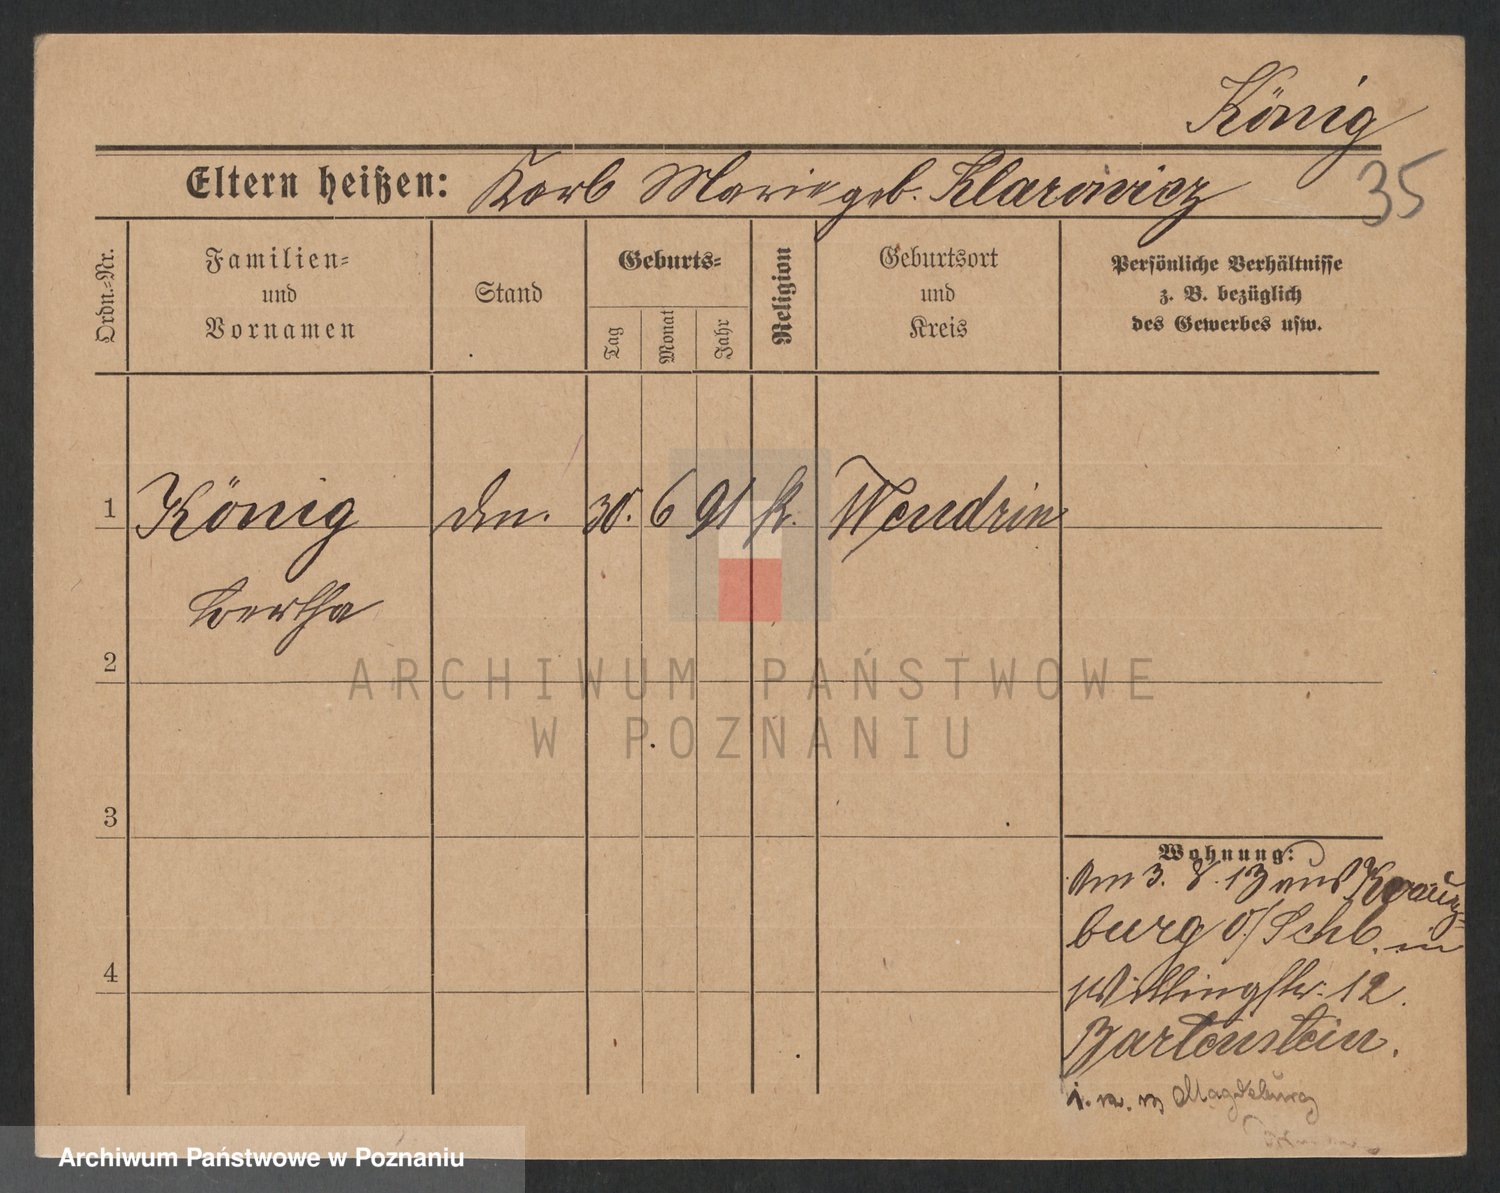 König
35
Eltern heißen: Karl Marie geb. Klarowicz
Ordn.=Nr.
Familien=
und
Vornamen
Stand
Geburts=
Tag
Monat
Jahr
Religion
Geburtsort
und
Kreis
Persönliche Verhältnisse
z. B. bezüglich
des Gewerbes usw.
1 König 30. 6 91 k. Wendrin
Bertha
2
ARCHIWUM PAŃSTWOWE
W POZNANIU
3
Wohnung:
Am 3. 8. 13 aus Kreuz-
burg O/Schl. in
12.
Bartenstein.
Magdeburg
4
Archiwum Państwowe w Poznaniu